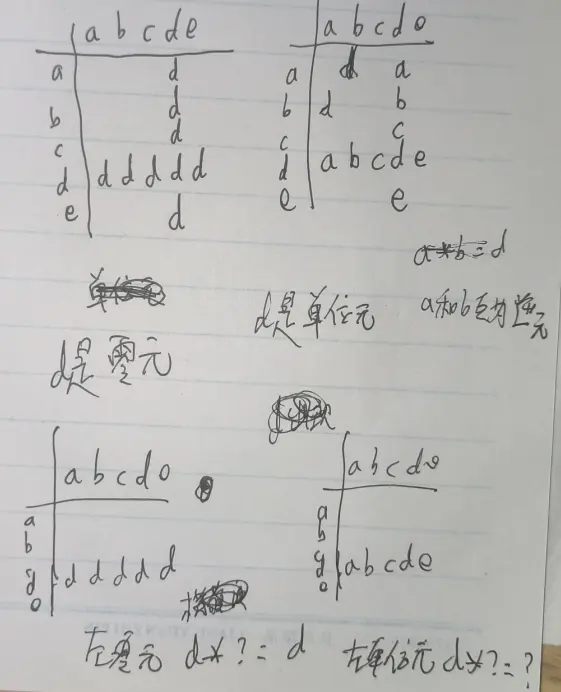 a b c d e
a d
b d
c d
d d d d d d
e d
a b c d e
a d a
b d b
c c
d a b c d e
e e
a*b=d
d是零元
d是单位元
a和b互为逆元
a b c d e
a
b
c
d d d d d d
e
a b c d e
a
b
c
d a b c d e
e
左零元 d*?=d
左单位元 d*?=?